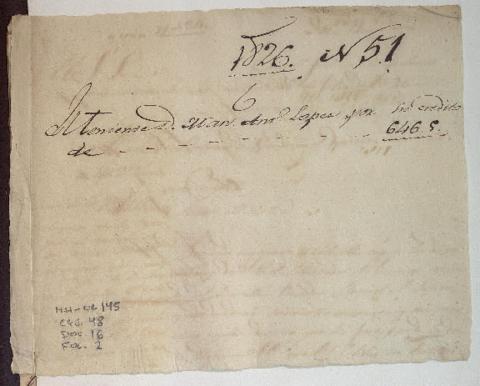 1826. N 51
6
Al Teniente D. Man. Ant.º Lopez por su credito
de - - - - - - - - - - 646. 5.
HH-OL 145
CAJ. 48
DOC. 16
FOL. 2